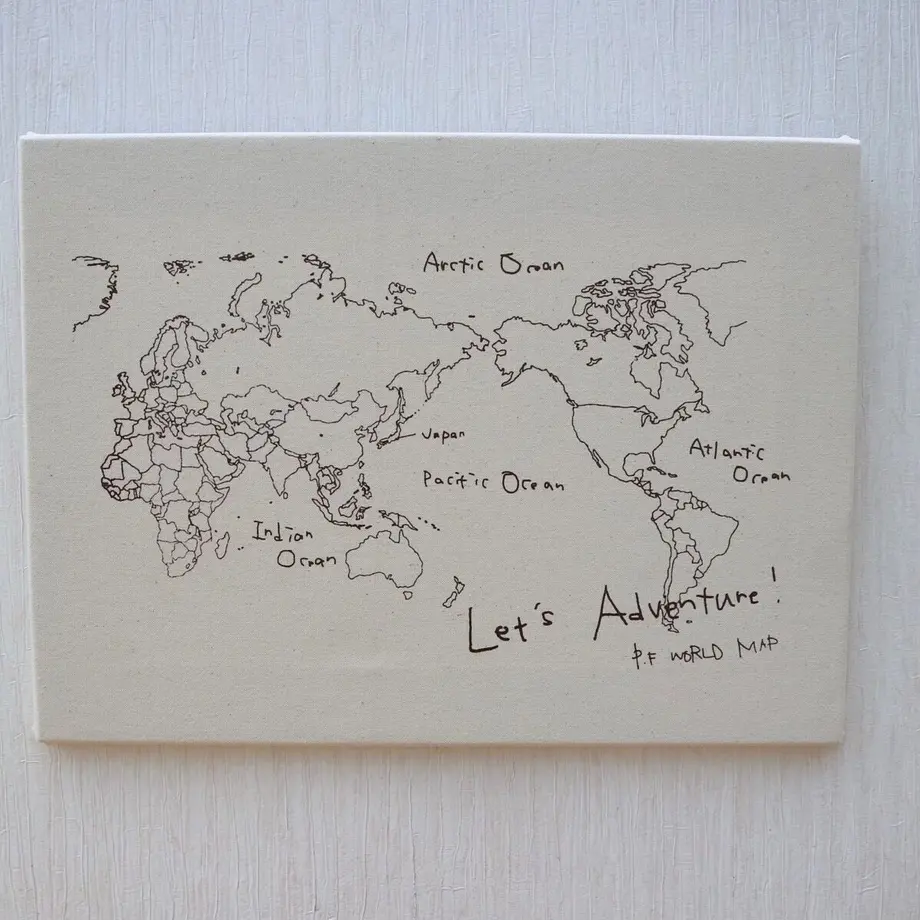 Arctic Ocean
Japan
Atlantic
Ocean
Pacific Ocean
Indian
Ocean
Let's Adventure!
P.F WORLD MAP